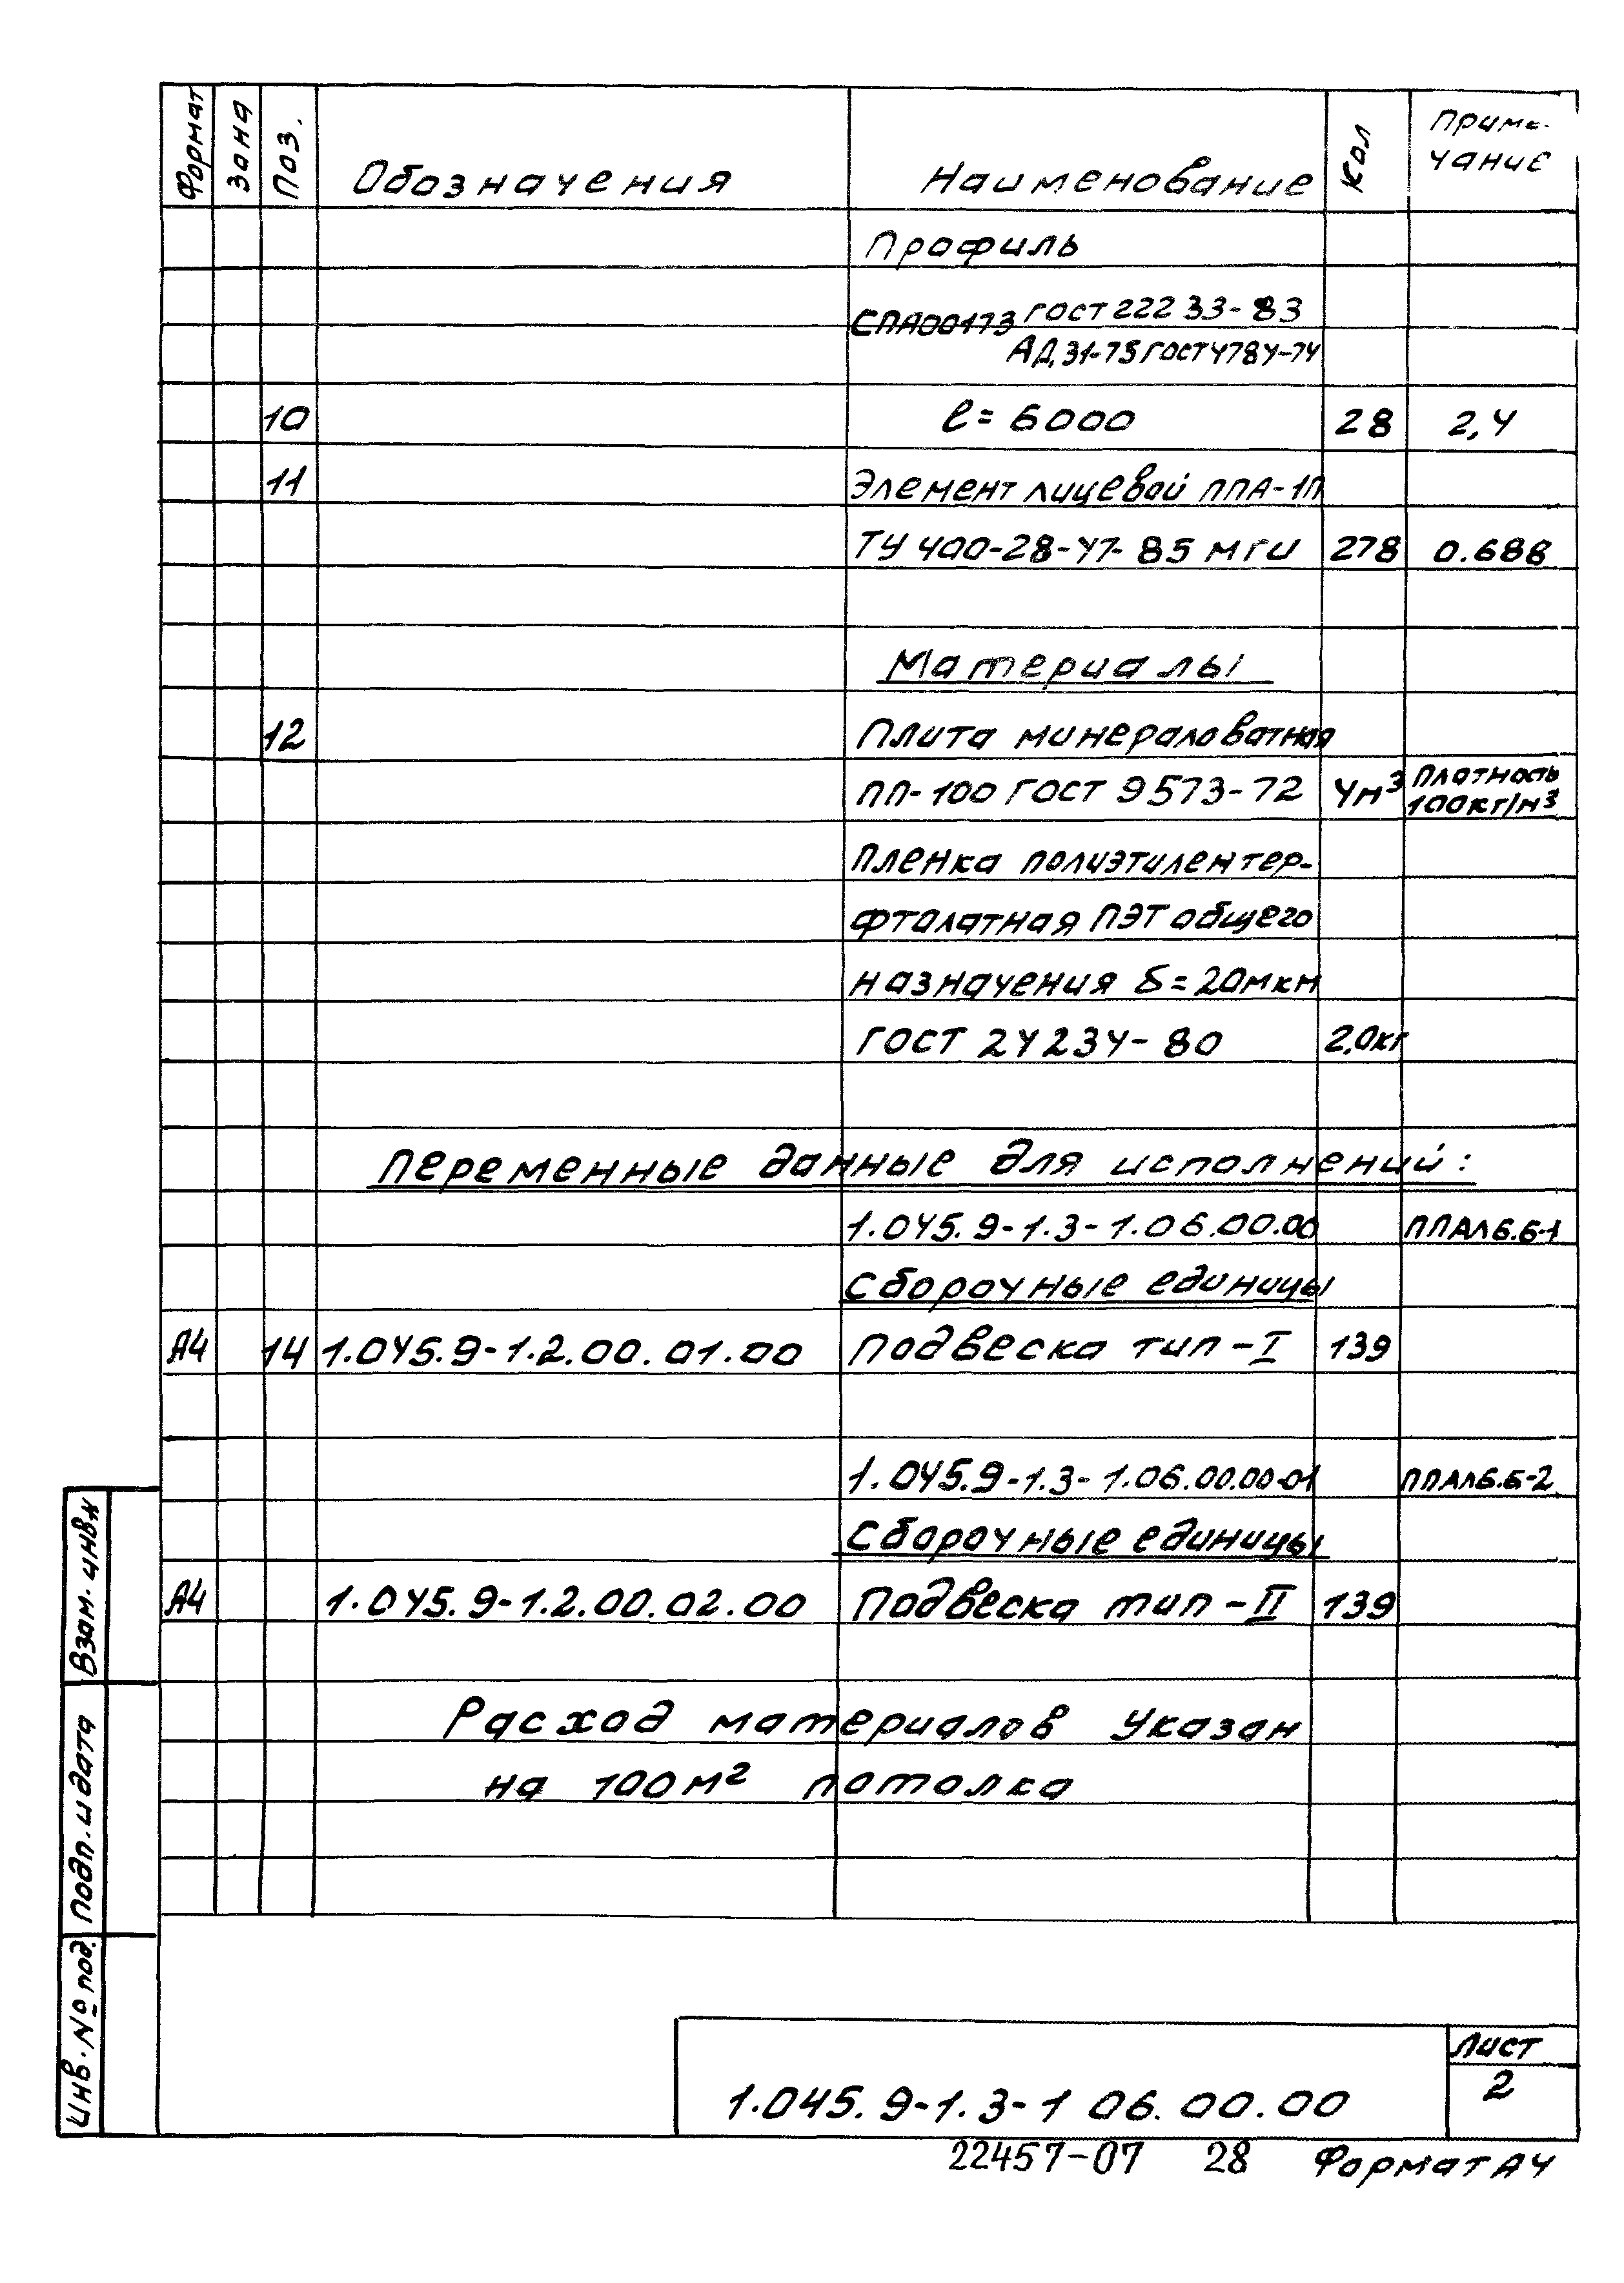 Формат Зона Поз. Обозначения Наименование Кол Приме-
чание
Профиль
СПА00173 ГОСТ 22233-83
АД31-75 ГОСТ 4784-74
10 ℓ=6000 28 2,4
11 Элемент лицевой ППА-1П
ТУ 400-28-47-85 МГИ 278 0.688
Материалы
12 Плита минераловатная
ПП-100 ГОСТ 9573-72 4м³ Плотность
100кг/м³
Пленка полиэтилентер-
фталатная ПЭТ общего
назначения δ=20мкм
ГОСТ 24234-80 2,0кг
Переменные данные для исполнений:
1.045.9-1.3-1.06.00.00 ППАл6.6-1
Сборочные единицы
А4 14 1.045.9-1.2.00.01.00 Подвеска тип-I 139
1.045.9-1.3-1.06.00.00-01 ППАл6.6-2
Сборочные единицы
А4 1.045.9-1.2.00.02.00 Подвеска тип-II 139
Расход материалов указан
на 100м² потолка
Взам. инв.№
Подп. и дата
Инв. № под.
1.045.9-1.3-1 06.00.00
Лист
2
22457-07 28 Формат А4